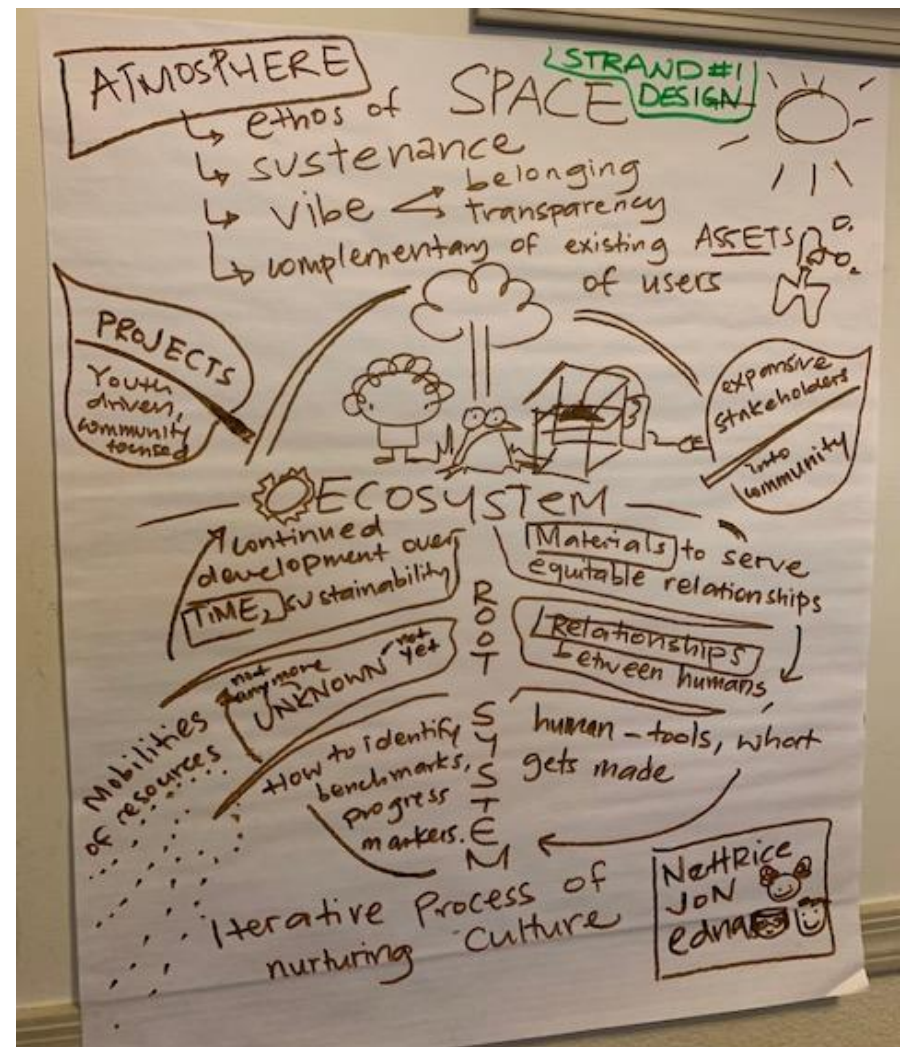 ATMOSPHERE
STRAND #1
DESIGN
↳ ethos of SPACE
↳ sustenance
↳ vibe < belonging
transparency
↳ complementary of existing ASSETS
of users
PROJECTS
Youth
driven,
community
focused
expansive
stakeholders
into
community
ECOSYSTEM
continued
development over
TIME, sustainability
Materials to serve
equitable relationships
ROOT SYSTEM
not anymore
UNKNOWN
not yet
Relationships
between humans
Mobilities
of resources
How to identify
benchmarks,
progress
markers.
human-tools, what
gets made
Iterative Process of
nurturing culture
NettRice
JON
edna